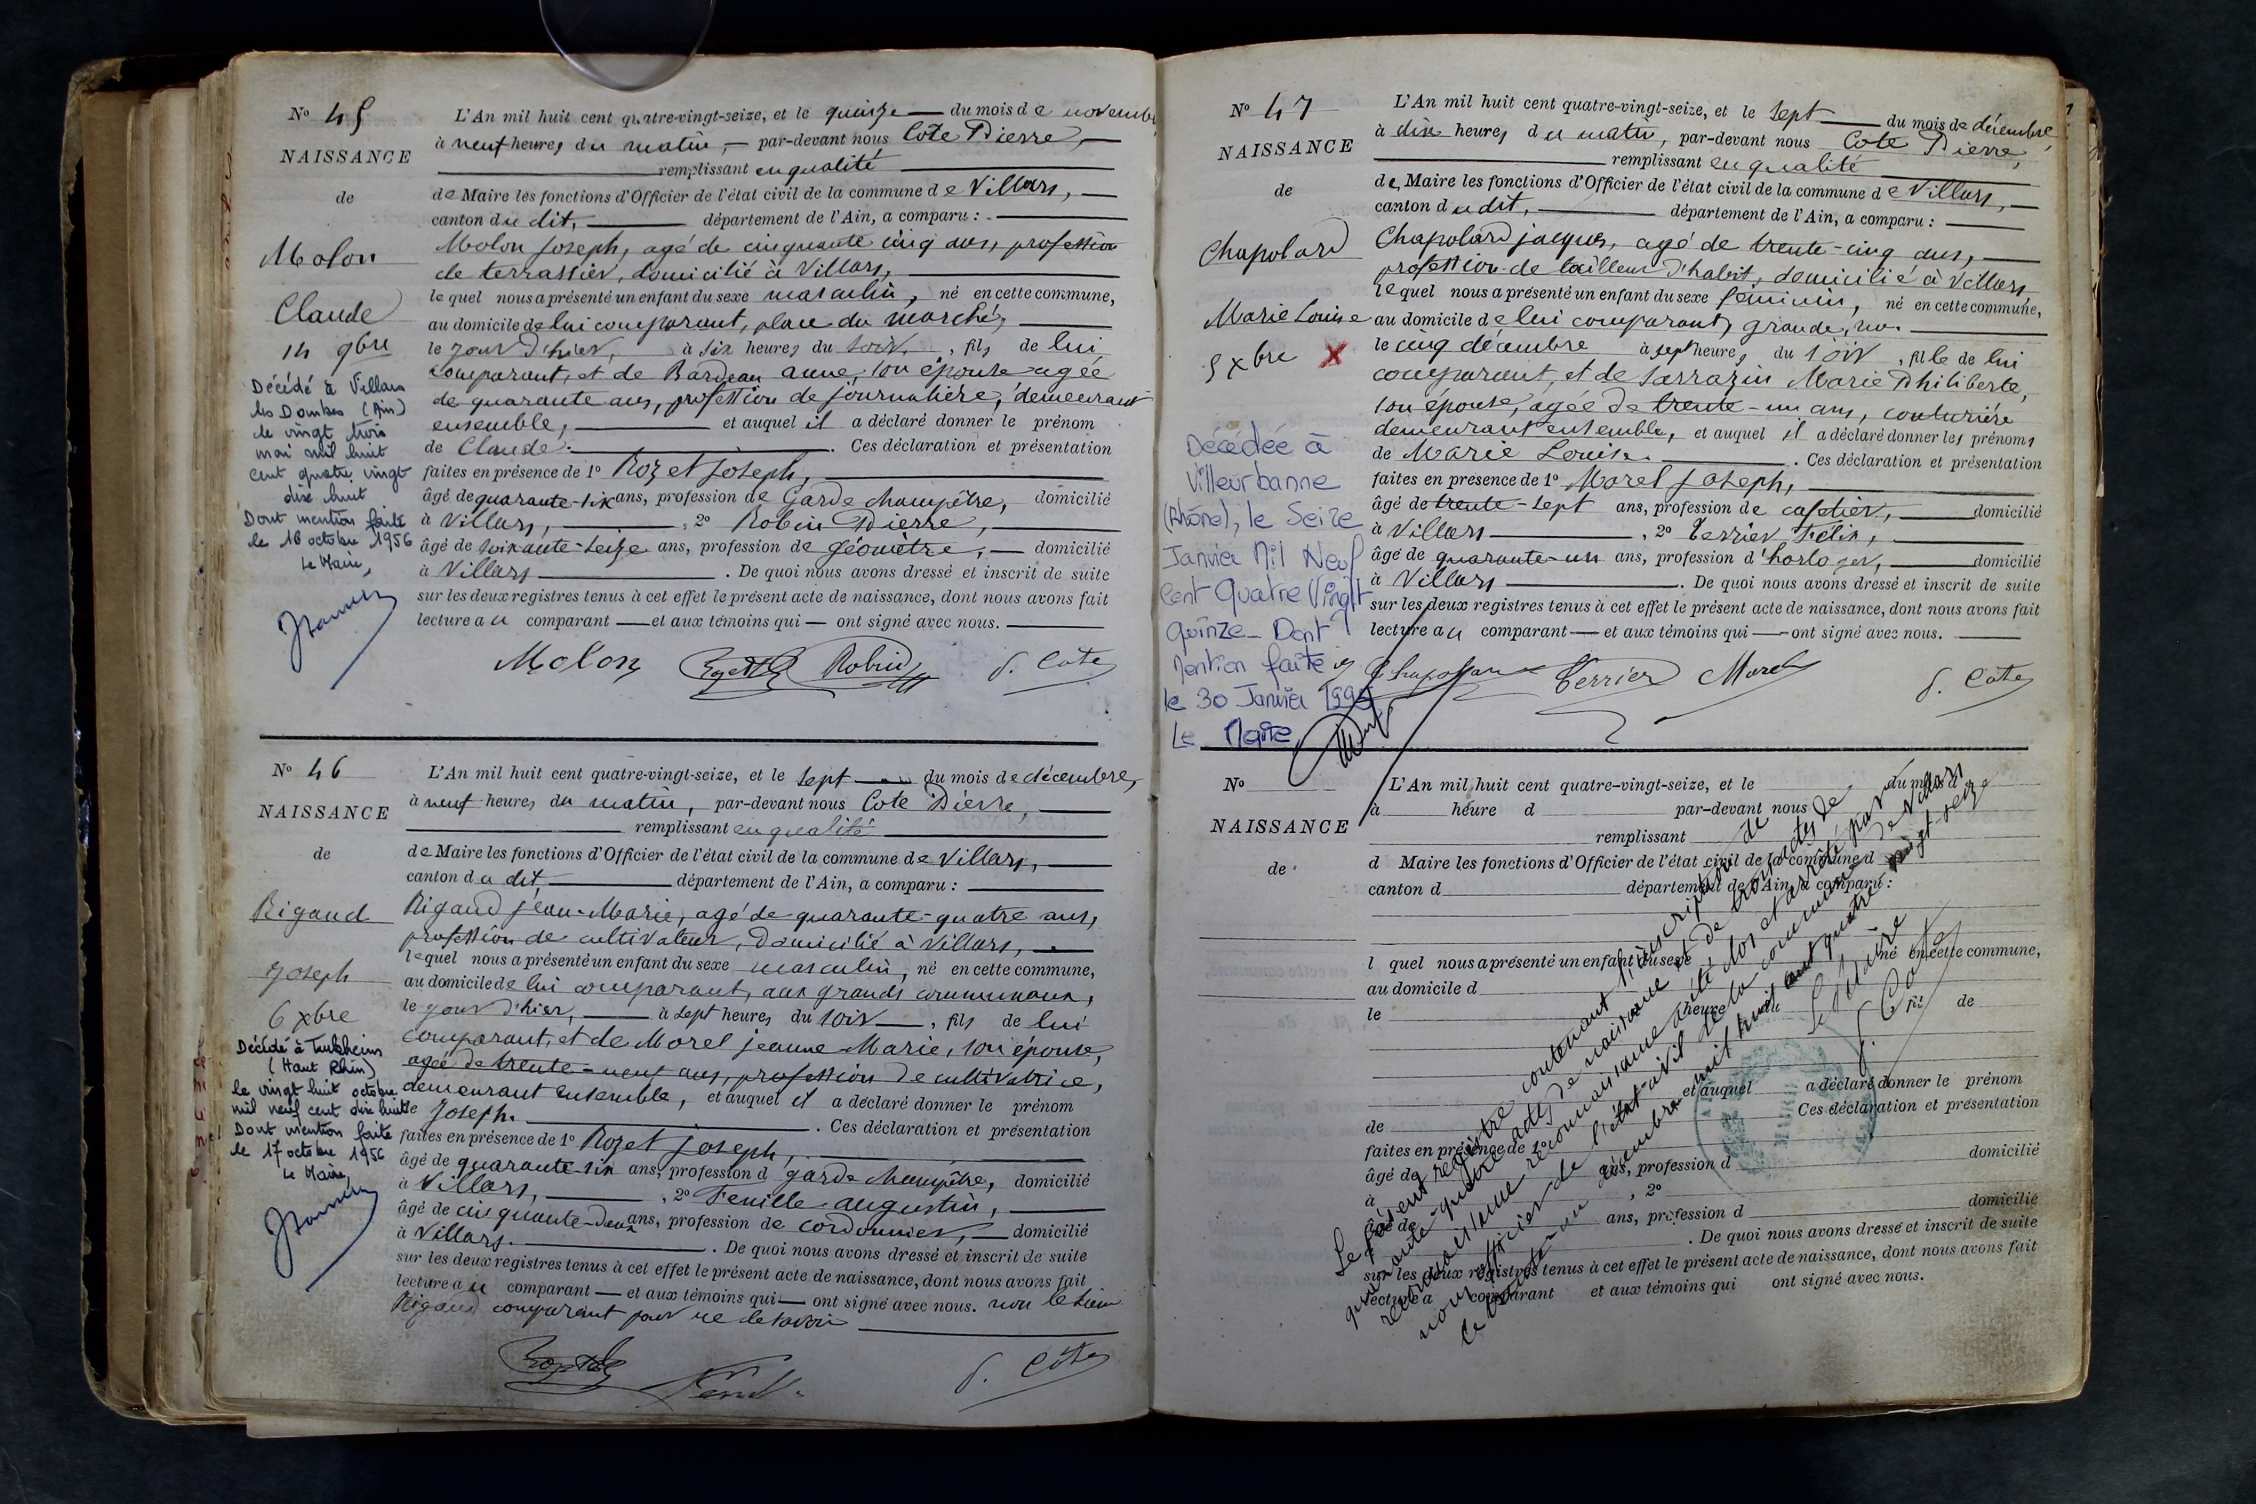 N° 45
NAISSANCE
de
Molon
Claude
14 9bre
Décédé à Villars
les Dombes (Ain)
le vingt trois
mai mil huit
cent quatre vingt
dix huit
Dont mention faite
le 16 octobre 1956
Le Maire,
L'An mil huit cent quatre-vingt-seize, et le quinze du mois de novembre
à neuf heures du matin, par-devant nous Cote Pierre,
remplissant en qualité
de Maire les fonctions d'Officier de l'état civil de la commune de Villars,
canton du dit, département de l'Ain, a comparu :
Molon Joseph, agé de cinquante cinq ans, profession
de terrassier, domicilié à Villars,
lequel nous a présenté un enfant du sexe masculin, né en cette commune,
au domicile de lui comparant, place du marché,
le jour d'hier, à six heures du soir, fils de lui
comparant, et de Bardeau anne, son épouse agée
de quarante ans, profession de journalière, demeurant
ensemble, et auquel il a déclaré donner le prénom
de Claude. Ces déclaration et présentation
faites en présence de 1° Rozet Joseph,
âgé de quarante-six ans, profession de Garde champêtre, domicilié
à Villars, 2° Robin Pierre,
âgé de soixante-seize ans, profession de géomètre, domicilié
à Villars. De quoi nous avons dressé et inscrit de suite
sur les deux registres tenus à cet effet le présent acte de naissance, dont nous avons fait
lecture au comparant et aux témoins qui ont signé avec nous.
Molon Rozet Robin P. Cote
N° 46
NAISSANCE
de
Rigaud
Joseph
6 xbre
Décédé à Turkheim
(Haut Rhin)
le vingt huit octobre
mil neuf cent dix huit
Dont mention faite
le 17 octobre 1956
Le Maire,
L'An mil huit cent quatre-vingt-seize, et le sept du mois de décembre,
à neuf heures du matin, par-devant nous Cote Pierre,
remplissant en qualité
de Maire les fonctions d'Officier de l'état civil de la commune de Villars,
canton du dit, département de l'Ain, a comparu :
Rigaud Jean-Marie, agé de quarante-quatre ans,
profession de cultivateur, domicilié à Villars,
lequel nous a présenté un enfant du sexe masculin, né en cette commune,
au domicile de lui comparant, aux grands communaux,
le jour d'hier, à sept heures du soir, fils de lui
comparant, et de Morel jeanne Marie, son épouse,
agée de trente-neuf ans, profession de cultivatrice,
demeurant ensemble, et auquel il a déclaré donner le prénom
de Joseph. Ces déclaration et présentation
faites en présence de 1° Rozet joseph,
âgé de quarante-six ans, profession d garde champêtre, domicilié
à Villars, 2° Feuille augustin,
âgé de cinquante-deux ans, profession de cordonnier, domicilié
à Villars. De quoi nous avons dressé et inscrit de suite
sur les deux registres tenus à cet effet le présent acte de naissance, dont nous avons fait
lecture au comparant et aux témoins qui ont signé avec nous. non le sieur
Rigaud comparant pour ne le savoir
P. Cote
N° 47
NAISSANCE
de
Chapolard
Marie Louise
5 xbre X
Décédée à
Villeurbanne
(Rhône), le Seize
Janvier Mil Neuf
Cent Quatre Vingt
Quinze_ Dont
Mention faite
le 30 Janvier 1995
Le Maire
L'An mil huit cent quatre-vingt-seize, et le sept du mois de décembre,
à dix heures du matin, par-devant nous Cote Pierre,
remplissant en qualité
de Maire les fonctions d'Officier de l'état civil de la commune de Villars,
canton du dit, département de l'Ain, a comparu :
Chapolard jacques, agé de trente-cinq ans,
profession de tailleur d'habit, domicilié à Villars
lequel nous a présenté un enfant du sexe féminin, né en cette commune,
au domicile de lui comparant, grande rue.
le cinq décembre à sept heures du soir, fille de lui
comparant, et de Sarrazin Marie Philiberte,
son épouse, agée de trente-un ans, couturière
demeurant ensemble, et auquel il a déclaré donner les prénoms
de Marie Louise. Ces déclaration et présentation
faites en présence de 1° Morel Joseph,
âgé de trente-sept ans, profession de cafetier, domicilié
à Villars 2° Terrier Félix,
âgé de quarante-un ans, profession d'horloger, domicilié
à Villars. De quoi nous avons dressé et inscrit de suite
sur les deux registres tenus à cet effet le présent acte de naissance, dont nous avons fait
lecture au comparant et aux témoins qui ont signé avec nous.
Chapolard Terrier Morel P. Cote
N°
NAISSANCE
de
L'An mil huit cent quatre-vingt-seize, et le du mois d
à heure d par-devant nous
remplissant
d Maire les fonctions d'Officier de l'état civil de la commune d
canton d département de l'Ain, a comparu :
l quel nous a présenté un enfant du sexe né en cette commune,
au domicile d
le à heure du fil de
et auquel a déclaré donner le prénom
de Ces déclaration et présentation
faites en présence de 1°
âgé de ans, profession d domicilié
à , 2°
âgé de ans, profession d domicilié
à . De quoi nous avons dressé et inscrit de suite
sur les deux registres tenus à cet effet le présent acte de naissance, dont nous avons fait
lecture a comparant et aux témoins qui ont signé avec nous.
Le présent registre contenant l'inscription de
quarante-quatre actes de naissance et de trois actes de
reconnaissance a été clos et arrêté par
nous officier de l'état-civil de la commune de Villars
le trente-un décembre mil huit cent quatre vingt-seize
Le Maire
P. Cote
MAIRIE